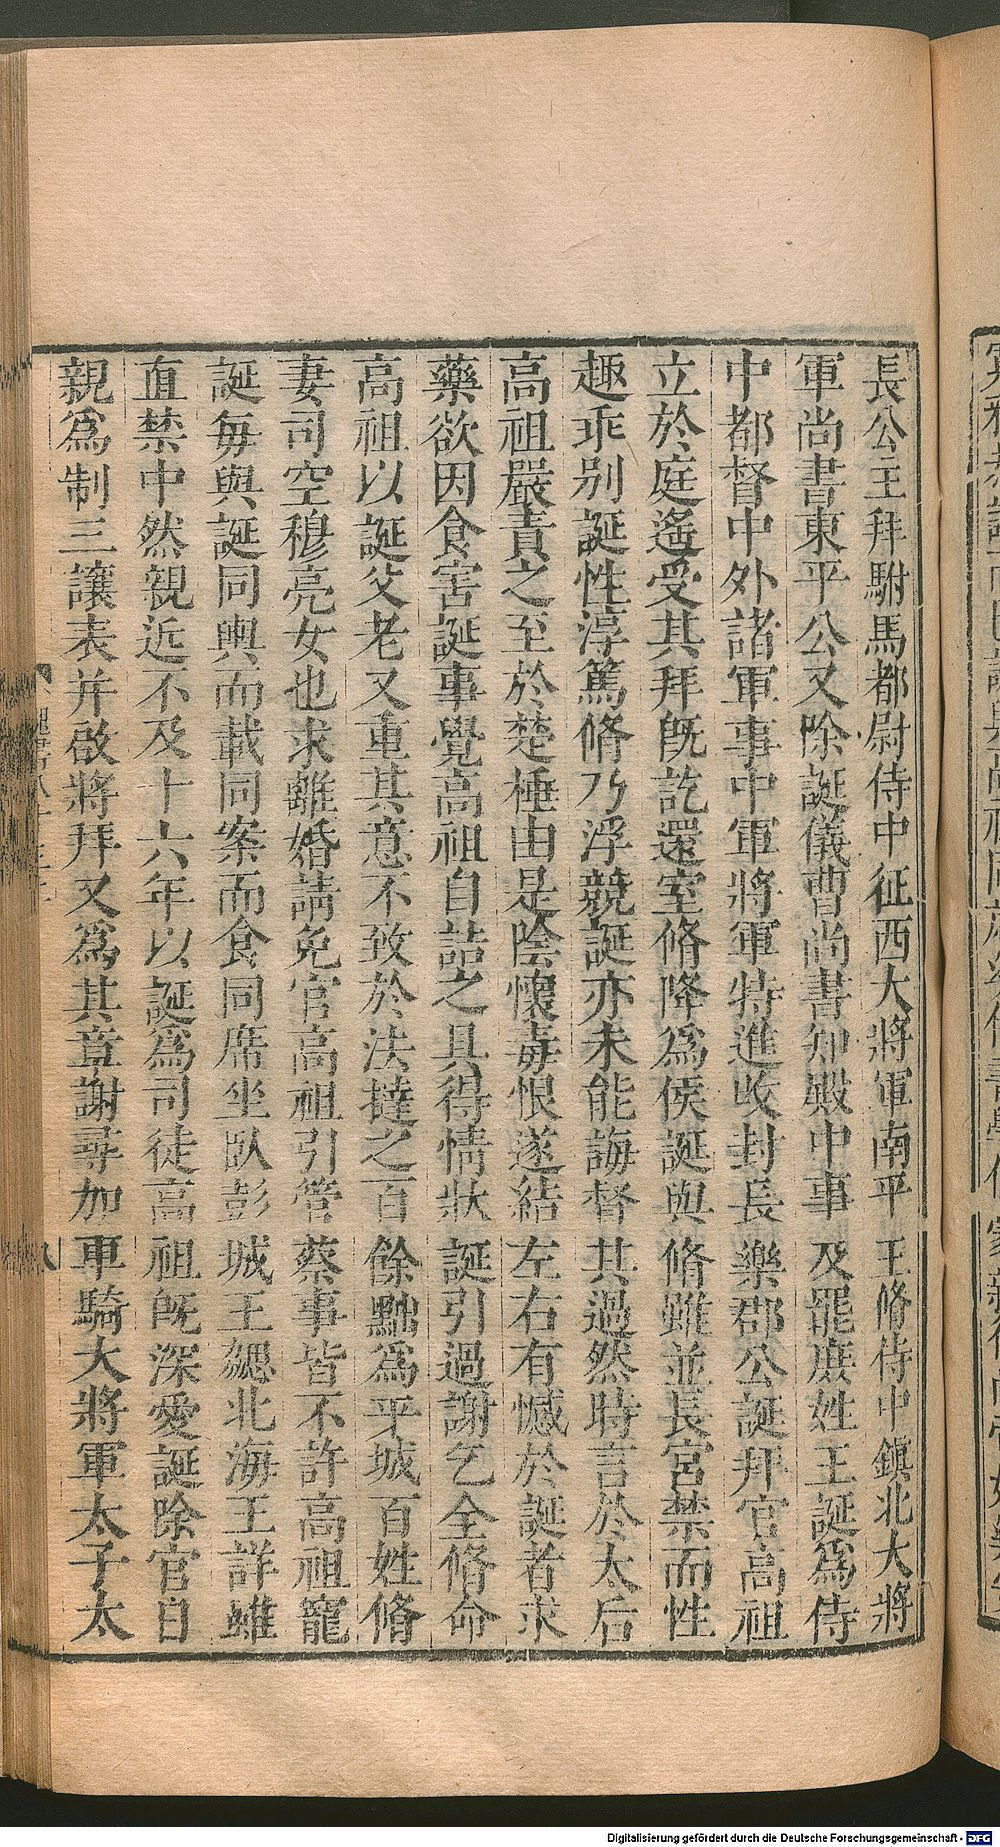 長公主拜駙馬都尉侍中征西大將軍南平王脩侍中鎮北大將
軍尚書東平公又除誕儀曹尚書知殿中事及罷庶姓王誕爲侍
中都督中外諸軍事中軍將軍特進改封長樂郡公誕拜官高祖
立於庭遙受其拜旣訖還室脩降爲侯誕與脩雖並長宮禁而性
趣乖别誕性淳篤脩乃浮競誕亦未能誨督其過然時言於太后
高祖嚴責之至於楚棰由是陰懷毒恨遂結左右有憾於誕者求
藥欲因食害誕事覺高祖自詰之具得情狀誕引過謝乞全脩命
高祖以誕父老又重其意不致於法撻之百餘黜爲平城百姓脩
妻司空穆亮女也求離婚請免官高祖引管蔡事皆不許高祖寵
誕每與誕同輿而載同案而食同席坐臥彭城王勰北海王詳雖
直禁中然親近不及十六年以誕爲司徒高祖旣深愛誕除官自
親爲制三讓表并啟將拜又爲其章謝尋加車騎大將軍太子太
Digitalisierung gefördert durch die Deutsche Forschungsgemeinschaft - DFG